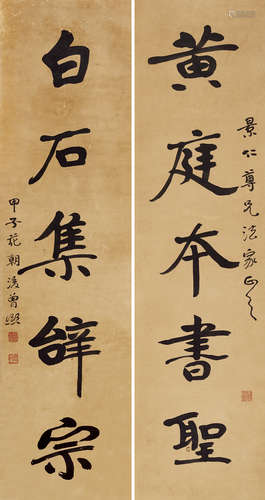 黄庭本書聖
景仁尊兄法家正之
白石集辭宗
甲子花朝後曾熙